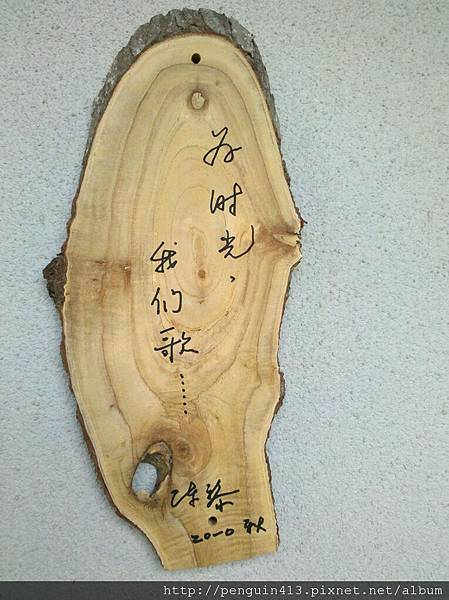 为时光，
我们歌……
陈黎
20一0 秋
http://penguin413.pixnet.net/album